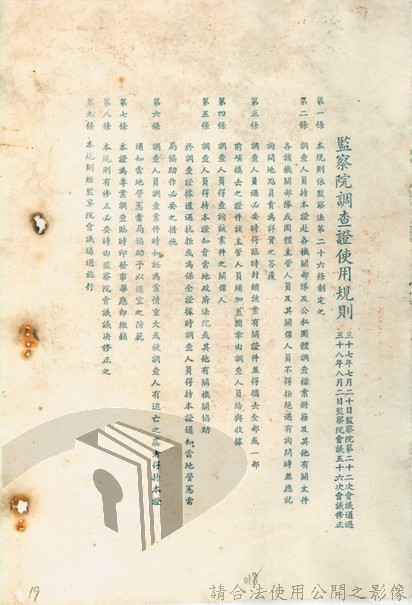 監察院調查證使用規則
三十七年七月二十日監察院第二十二次會議通過
三十八年八月二日監察院會議五十六次會議修正
第一條 本規則依監察法第二十六條制定之
第二條 調查人員持本證赴各機關部隊及公私團體調查檔案冊籍及其他有關文件
各該機關部隊或團體主管人員及其關係人員不得拒絕遇有詢問時並應就
詢問地點負責為詳實之答覆
第三條 調查人員遇必要時得臨時封鎖該案有關證件並得攜去全部或一部
前項攜去之證件該主管人員須加蓋圖章由調查人員給與收據
第四條 調查人員得持本證查詢該案件之關係人
第五條 調查人員得持本證知會當地政府法院或其他有關機關協助
於調查證據遭遇抗拒或為保全證據時調查人員得持本證通知當地警憲當
局協助作必要之措施
第六條 調查人員調查案件時如認為案情重大或被調查人有逃亡之虞者得持本證
通知當地警憲當局協助予以適宜之防範
第七條 本證為專案調查臨時印發事畢應即繳銷
第八條 本規則有修正必要時由監察院會議議決修正之
第九條 本規則經監察院會議通過施行
19
018
請合法使用公開之影像